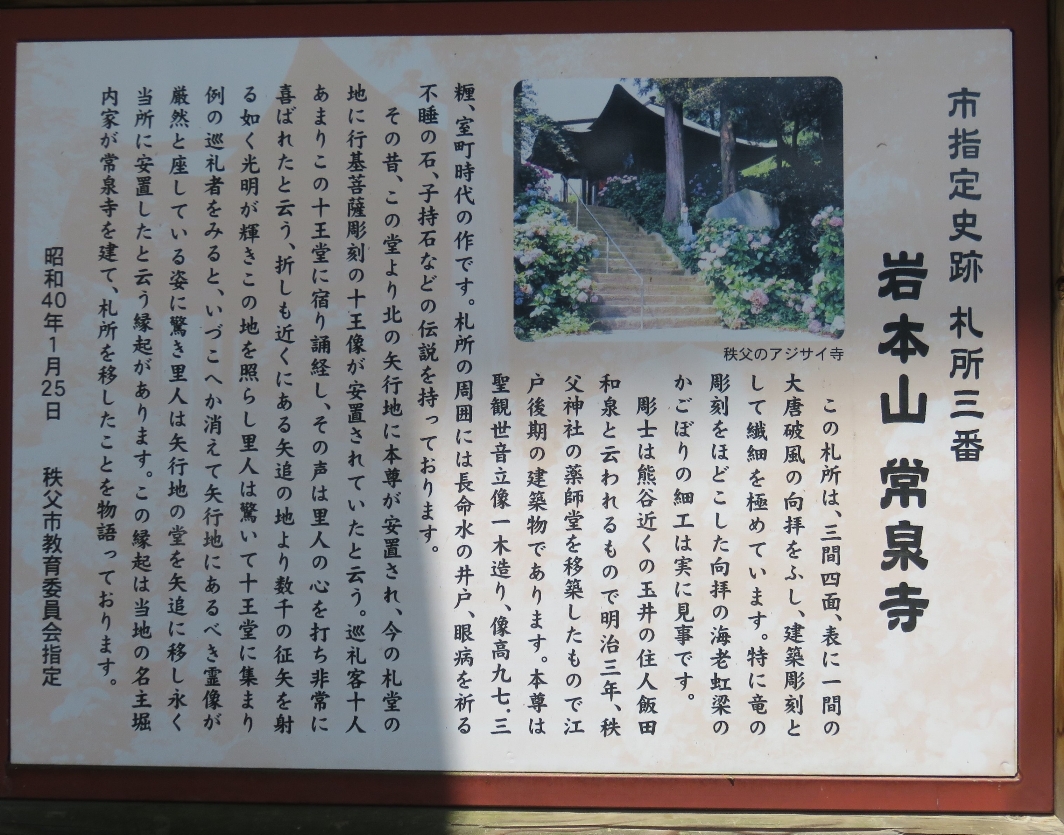 市指定史跡 札所三番
岩本山 常泉寺
秩父のアジサイ寺
この札所は、三間四面、表に一間の
大唐破風の向拝をふし、建築彫刻と
して繊細を極めています。特に竜の
彫刻をほどこした向拝の海老虹梁の
かごぼりの細工は実に見事です。
彫士は熊谷近くの玉井の住人飯田
和泉と云われるもので明治三年、秩
父神社の薬師堂を移築したもので江
戸後期の建築物であります。本尊は
聖観世音立像一木造り、像高九七.三
糎、室町時代の作です。札所の周囲には長命水の井戸、眼病を祈る
不睡の石、子持石などの伝説を持っております。
その昔、この堂より北の矢行地に本尊が安置され、今の札堂の
地に行基菩薩彫刻の十王像が安置されていたと云う。巡礼客十人
あまりこの十王堂に宿り誦経し、その声は里人の心を打ち非常に
喜ばれたと云う、折しも近くにある矢追の地より数千の征矢を射
る如く光明が輝きこの地を照らし里人は驚いて十王堂に集まり
例の巡礼者をみると、いづこへか消えて矢行地にあるべき霊像が
厳然と座している姿に驚き里人は矢行地の堂を矢追に移し永く
当所に安置したと云う縁起があります。この縁起は当地の名主堀
内家が常泉寺を建て、札所を移したことを物語っております。
昭和40年1月25日 秩父市教育委員会指定